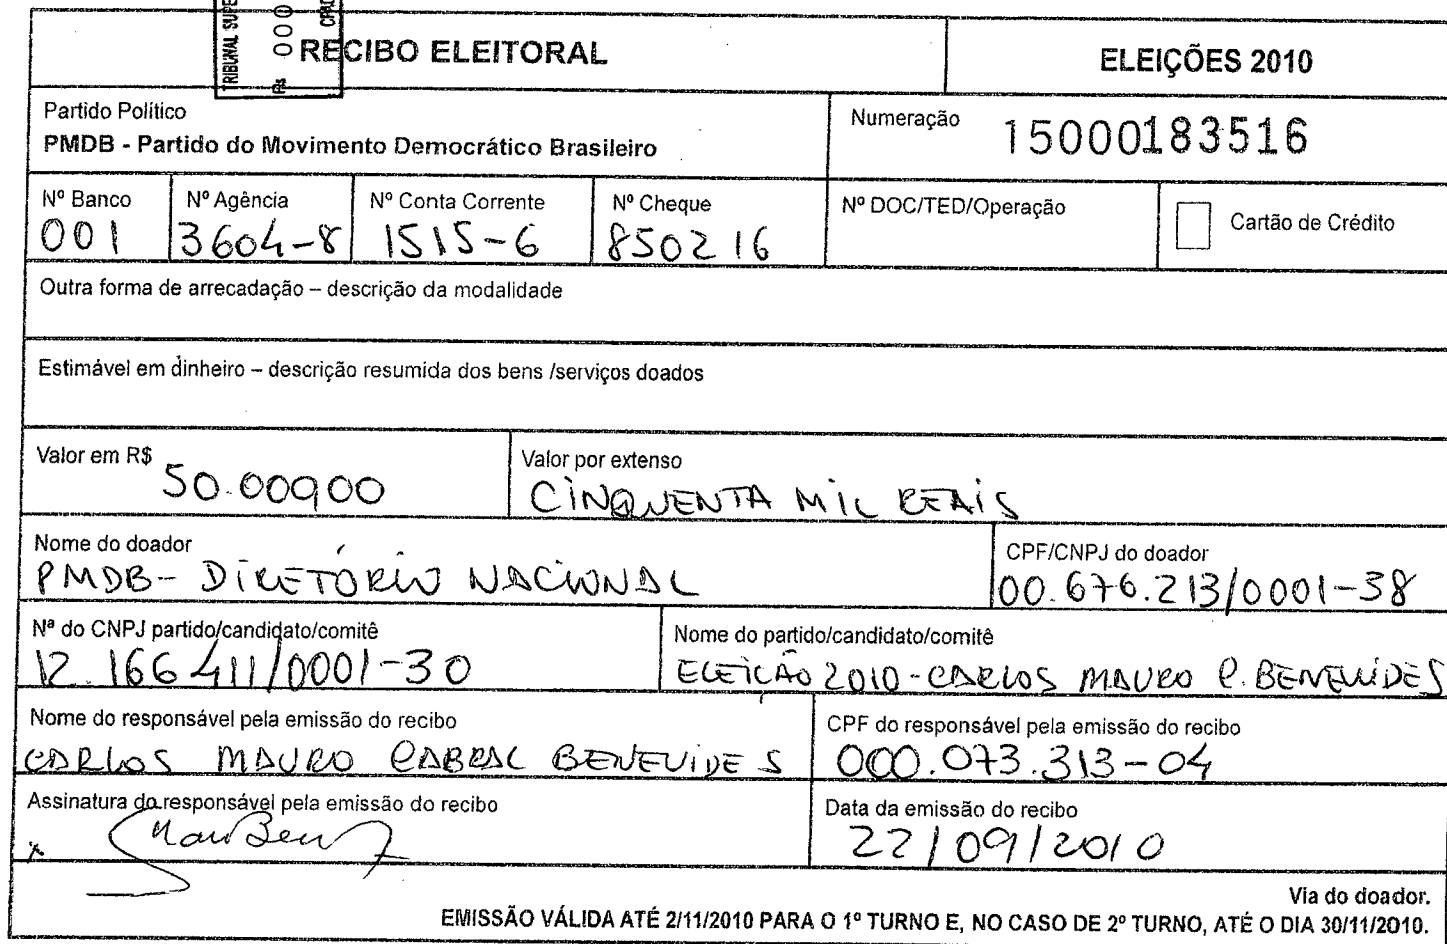 TRIBUNAL SUPE
000
RECIBO ELEITORAL
ELEIÇÕES 2010
Partido Político
PMDB - Partido do Movimento Democrático Brasileiro
Numeração
15000183516
Nº Banco
001
Nº Agência
3604-8
Nº Conta Corrente
1515-6
Nº Cheque
850216
Nº DOC/TED/Operação
Cartão de Crédito
Outra forma de arrecadação – descrição da modalidade
Estimável em dinheiro – descrição resumida dos bens /serviços doados
Valor em R$
50.000,00
Valor por extenso
CINQUENTA MIL REAIS
Nome do doador
PMDB- DIRETÓRIO NACIONAL
CPF/CNPJ do doador
00.676.213/0001-38
Nª do CNPJ partido/candidato/comitê
12.166411/0001-30
Nome do partido/candidato/comitê
ELEIÇÃO 2010-CARLOS MAURO C. BENEVIDES
Nome do responsável pela emissão do recibo
CARLOS MAURO CABRAL BENEVIDES
CPF do responsável pela emissão do recibo
000.073.313-04
Assinatura do responsável pela emissão do recibo
x
Data da emissão do recibo
22/09/2010
Via do doador.
EMISSÃO VÁLIDA ATÉ 2/11/2010 PARA O 1º TURNO E, NO CASO DE 2º TURNO, ATÉ O DIA 30/11/2010.